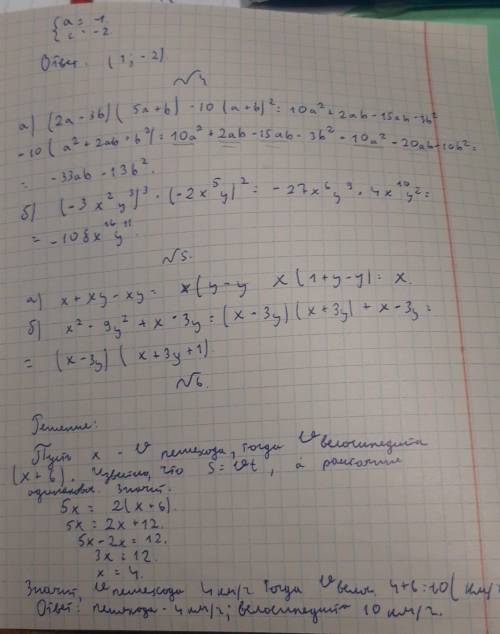 { a = -1
{ c = -2
Ответ: (1; -2)
№4
а) (2a - 3b)(5a + b) - 10(a + b)² = 10a² + 2ab - 15ab - 3b²
-10(a² + 2ab + b²) = 10a² + 2ab - 15ab - 3b² - 10a² - 20ab - 10b² =
= -33ab - 13b².
б) (-3x²y³)³ · (-2x⁵y)² = -27x⁶y⁹ · 4x¹⁰y² =
= -108x¹⁶y¹¹.
№5.
а) x + xy - xy = x(y - y x(1 + y - y) = x.
б) x² - 9y² + x - 3y = (x - 3y)(x + 3y) + x - 3y =
= (x - 3y)(x + 3y + 1).
№6.
Решение:
Пусть x - v пешехода, тогда v велосипедиста
(x + 6). Известно, что S = vt, а расстояние
одинаковы. Значит:
5x = 2(x + 6).
5x = 2x + 12.
5x - 2x = 12.
3x = 12.
x = 4.
Значит, v пешехода 4 км/ч тогда v велос. 4 + 6 = 10 (км/ч
Ответ: пешехода - 4 км/ч; велосипедиста 10 км/ч.